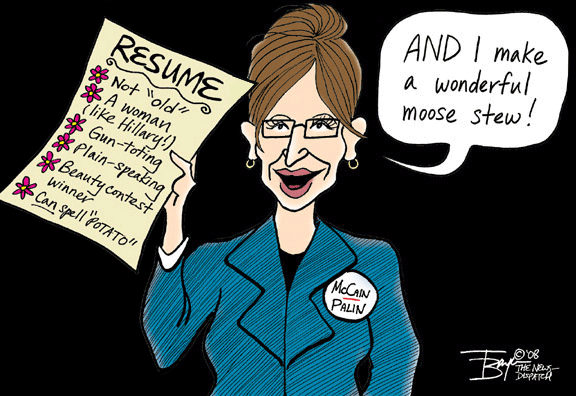 RESUME
Not "old"
A woman
(like Hillary!)
Gun-toting
Plain-speaking
Beauty contest
winner
Can spell "POTATO"
AND I make
a wonderful
moose stew!
McCAIN
PALIN
©'08
THE NEWS-
DISPATCH